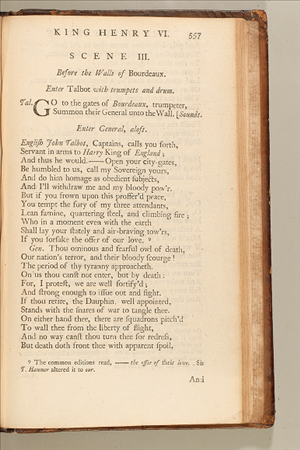 KING HENRY VI. 557
SCENE III.
Before the Walls of Bourdeaux.
Enter Talbot with trumpets and drum.
Tal. GO to the gates of Bourdeaux, trumpeter,
Summon their General unto the Wall. [Sounds.
Enter General, aloft.
Engliſh John Talbot, Captains, calls you forth,
Servant in arms to Harry King of England;
And thus he would.——Open your city-gates,
Be humbled to us, call my Sovereign yours,
And do him homage as obedient ſubjects,
And I'll withdraw me and my bloody pow'r.
But if you frown upon this proffer'd peace,
You tempt the fury of my three attendants,
Lean famine, quartering ſteel, and climbing fire;
Who in a moment even with the earth
Shall lay your ſtately and air-braving tow'rs,
If you forſake the offer of our love. ⁹
Gen. Thou ominous and fearful owl of death,
Our nation's terror, and their bloody ſcourge!
The period of thy tyranny approacheth.
On us thou canſt not enter, but by death:
For, I proteſt, we are well fortify'd;
And ſtrong enough to iſſue out and fight.
If thou retire, the Dauphin, well appointed,
Stands with the ſnares of war to tangle thee.
On either hand thee, there are ſquadrons pitch'd
To wall thee from the liberty of flight,
And no way canſt thou turn thee for redreſs,
But death doth front thee with apparent ſpoil,
9 The common editions read, —— the offer of their love. Sir
T. Hanmer altered it to our.
And